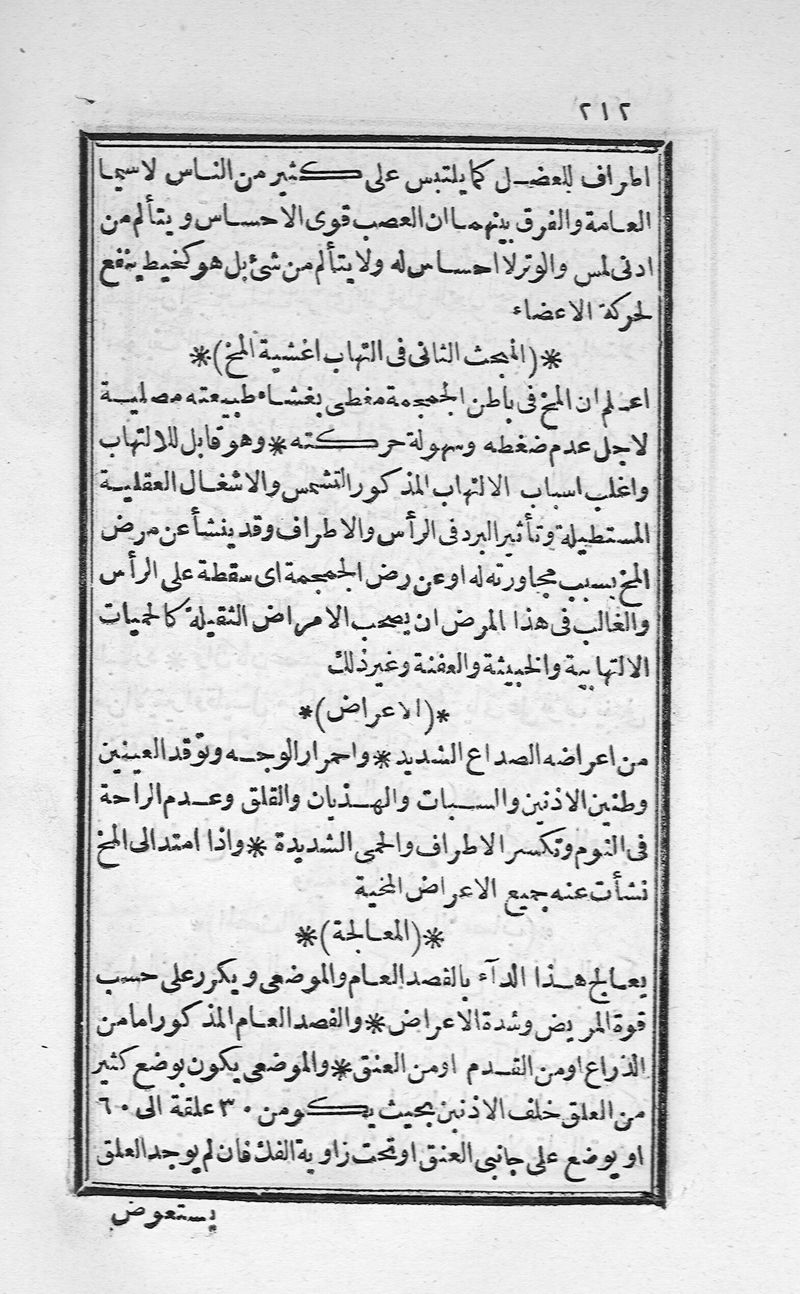 ٢١٢
اطراف للعضل كما يلتبس على كثير من الناس لاسيما
العامة والفرق بينهما ان العصب قوى الاحساس ويتألم من
ادنى لمس والوتر لا احساس له ولا يتألم من شئ بل هو كخيط ينفع
لحركة الاعضاء
*(المبحث الثانى فى التهاب اغشية المخ)*
اعلم ان المخ فى باطن الجمجمة مغطى بغشاء طبيعته مصلية
لاجل عدم ضغطه وسهولة حركته * وهو قابل للالتهاب
واغلب اسباب الالتهاب المذكور التشمس والاشغال العقلية
المستطيلة وتأثير البرد فى الرأس والاطراف وقد ينشأ عن مرض
المخ بسبب مجاورته له او عن رض الجمجمة اى سقطة على الرأس
والغالب فى هذا المرض ان يصحب الامراض الثقيلة كالحميات
الالتهابية والخبيثة والعفنة وغير ذلك
*(الاعراض)*
من اعراضه الصداع الشديد * واحمرار الوجه وتوقد العينين
وطنين الاذنين والسبات والهذيان والقلق وعدم الراحة
فى النوم وتكسر الاطراف والحمى الشديدة * واذا امتد الى المخ
نشأت عنه جميع الاعراض المخية
*(المعالجة)*
يعالج هذا الدآء بالفصد العام والموضعى ويكرر على حسب
قوة المريض وشدة الاعراض * والفصد العام المذكور اما من
الذراع او من القدم او من العنق * والموضعى يكون بوضع كثير
من العلق خلف الاذنين بحيث يكو من ٣٠ علقة الى ٦٠
او يوضع على جانبى العنق او تحت زاوية الفك فان لم يوجد العلق
يستعوض